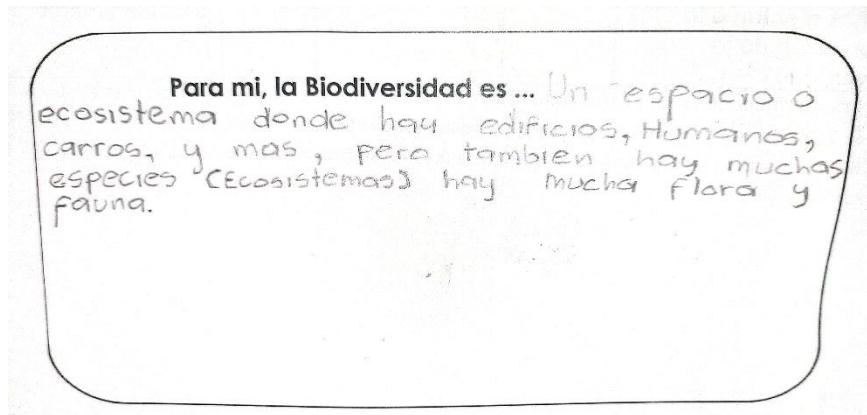 Para mi, la Biodiversidad es ... Un espacio o
ecosistema donde hay edificios, Humanos,
carros, y mas, pero tambien hay muchas
especies (Ecosistemas) hay mucha flora y
fauna.